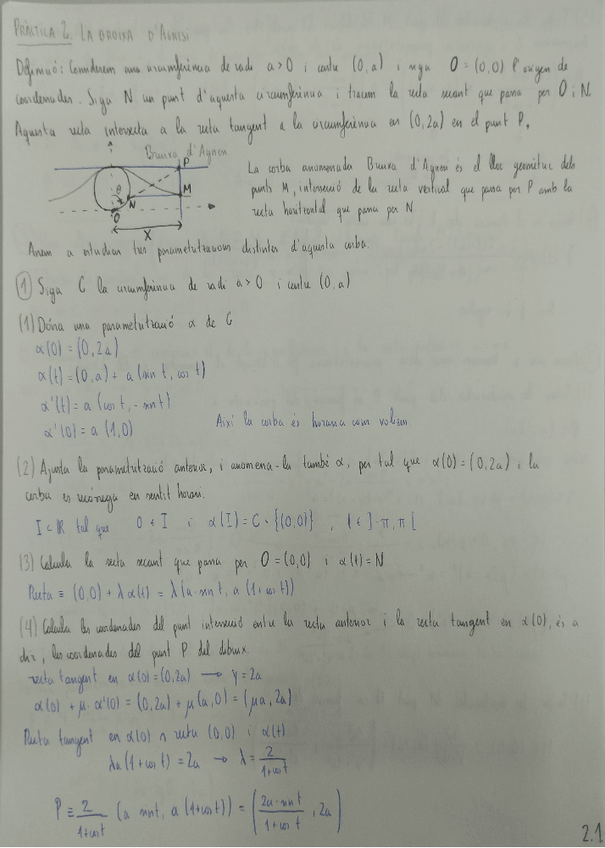 PRÀCTICA 2. LA BRUIXA D'AGNESI
Definició: Considerem una circumferència de radi a>0 i centre (0,a) i siga O=(0,0) l'origen de
coordenades. Siga N un punt d'aquesta circumferència i tracem la recta secant que passa per O i N.
Aquesta recta intersecta a la recta tangent a la circumferència en (0,2a) en el punt P.
Bruixa d'Agnesi
P
M
N
θ
O
X
La corba anomenada Bruixa d'Agnesi és el lloc geomètric dels
punts M, intersecció de la recta vertical que passa per P amb la
recta horitzontal que passa per N
Anem a estudiar tres parametritzacions distintes d'aquesta corba.
① Siga C la circumferència de radi a>0 i centre (0,a)
(1) Dóna una parametrització α de C
α(0) = (0,2a)
α(t) = (0,a) + a (sin t, cos t)
α'(t) = a (cos t, -sin t)
α'(0) = a (1,0)
Així la corba és horària com volíem
(2) Ajusta la parametrització anterior, i anomena-la també α, per tal que α(0) = (0,2a) i la
corba es recórrega en sentit horari.
I ⊂ ℝ tal que 0 ∈ I i α(I) = C \ {(0,0)} , t ∈ ]-π, π[
(3) Calcula la recta secant que passa per O=(0,0) i α(t)=N
Recta ≡ (0,0) + λ α(t) = λ(a·sin t, a (1+cos t))
(4) Calcula les coordenades del punt intersecció entre la recta anterior i la recta tangent en α(0), és a
dir, les coordenades del punt P del dibuix.
recta tangent en α(0) = (0,2a) → y = 2a
α(0) + μ·α'(0) = (0,2a) + μ(a,0) = (μa, 2a)
Recta tangent en α(0) ∩ recta (0,0) i α(t)
λa(1+cos t) = 2a → λ = 2/(1+cos t)
P ≡ 2/(1+cos t) (a sin t, a (1+cos t)) = (2a·sin t/(1+cos t), 2a)
2.1